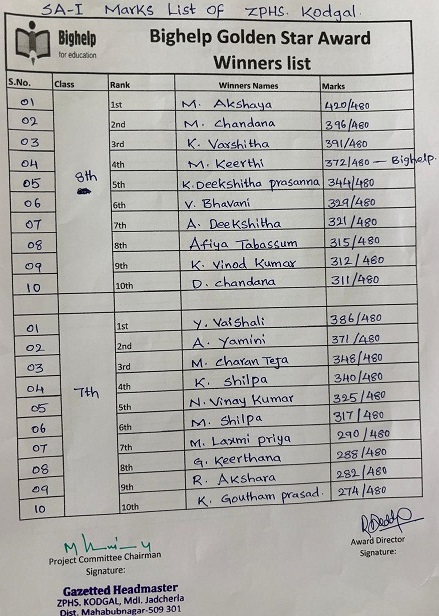 SA-I Marks List Of ZPHS. Kodgal.
Bighelp for education
Bighelp Golden Star Award
Winners list
S.No. Class Rank Winners Names Marks
01 1st M. Akshaya 420/480
02 2nd M. Chandana 396/480
03 3rd K. Varshitha 391/480
04 4th M. Keerthi 372/480 — Bighelp.
05 8th 5th K. Deekshitha prasanna 344/480
06 6th V. Bhavani 329/480
07 7th A. Deekshitha 321/480
08 8th Afiya Tabassum 315/480
09 9th K. Vinod Kumar 312/480
10 10th D. chandana 311/480
01 1st Y. Vaishali 386/480
02 2nd A. Yamini 371/480
03 3rd M. Charan Teja 348/480
04 7th 4th K. Shilpa 340/480
05 5th N. Vinay Kumar 325/480
06 6th M. Shilpa 317/480
07 7th M. Laxmi priya 290/480
08 8th G. Keerthana 288/480
09 9th R. Akshara 282/480
10 10th K. Goutham prasad. 274/480
Project Committee Chairman
Signature:
Award Director
Signature:
Gazetted Headmaster
ZPHS. KODGAL, Mdl. Jadcherla
Dist. Mahabubnagar-509 301